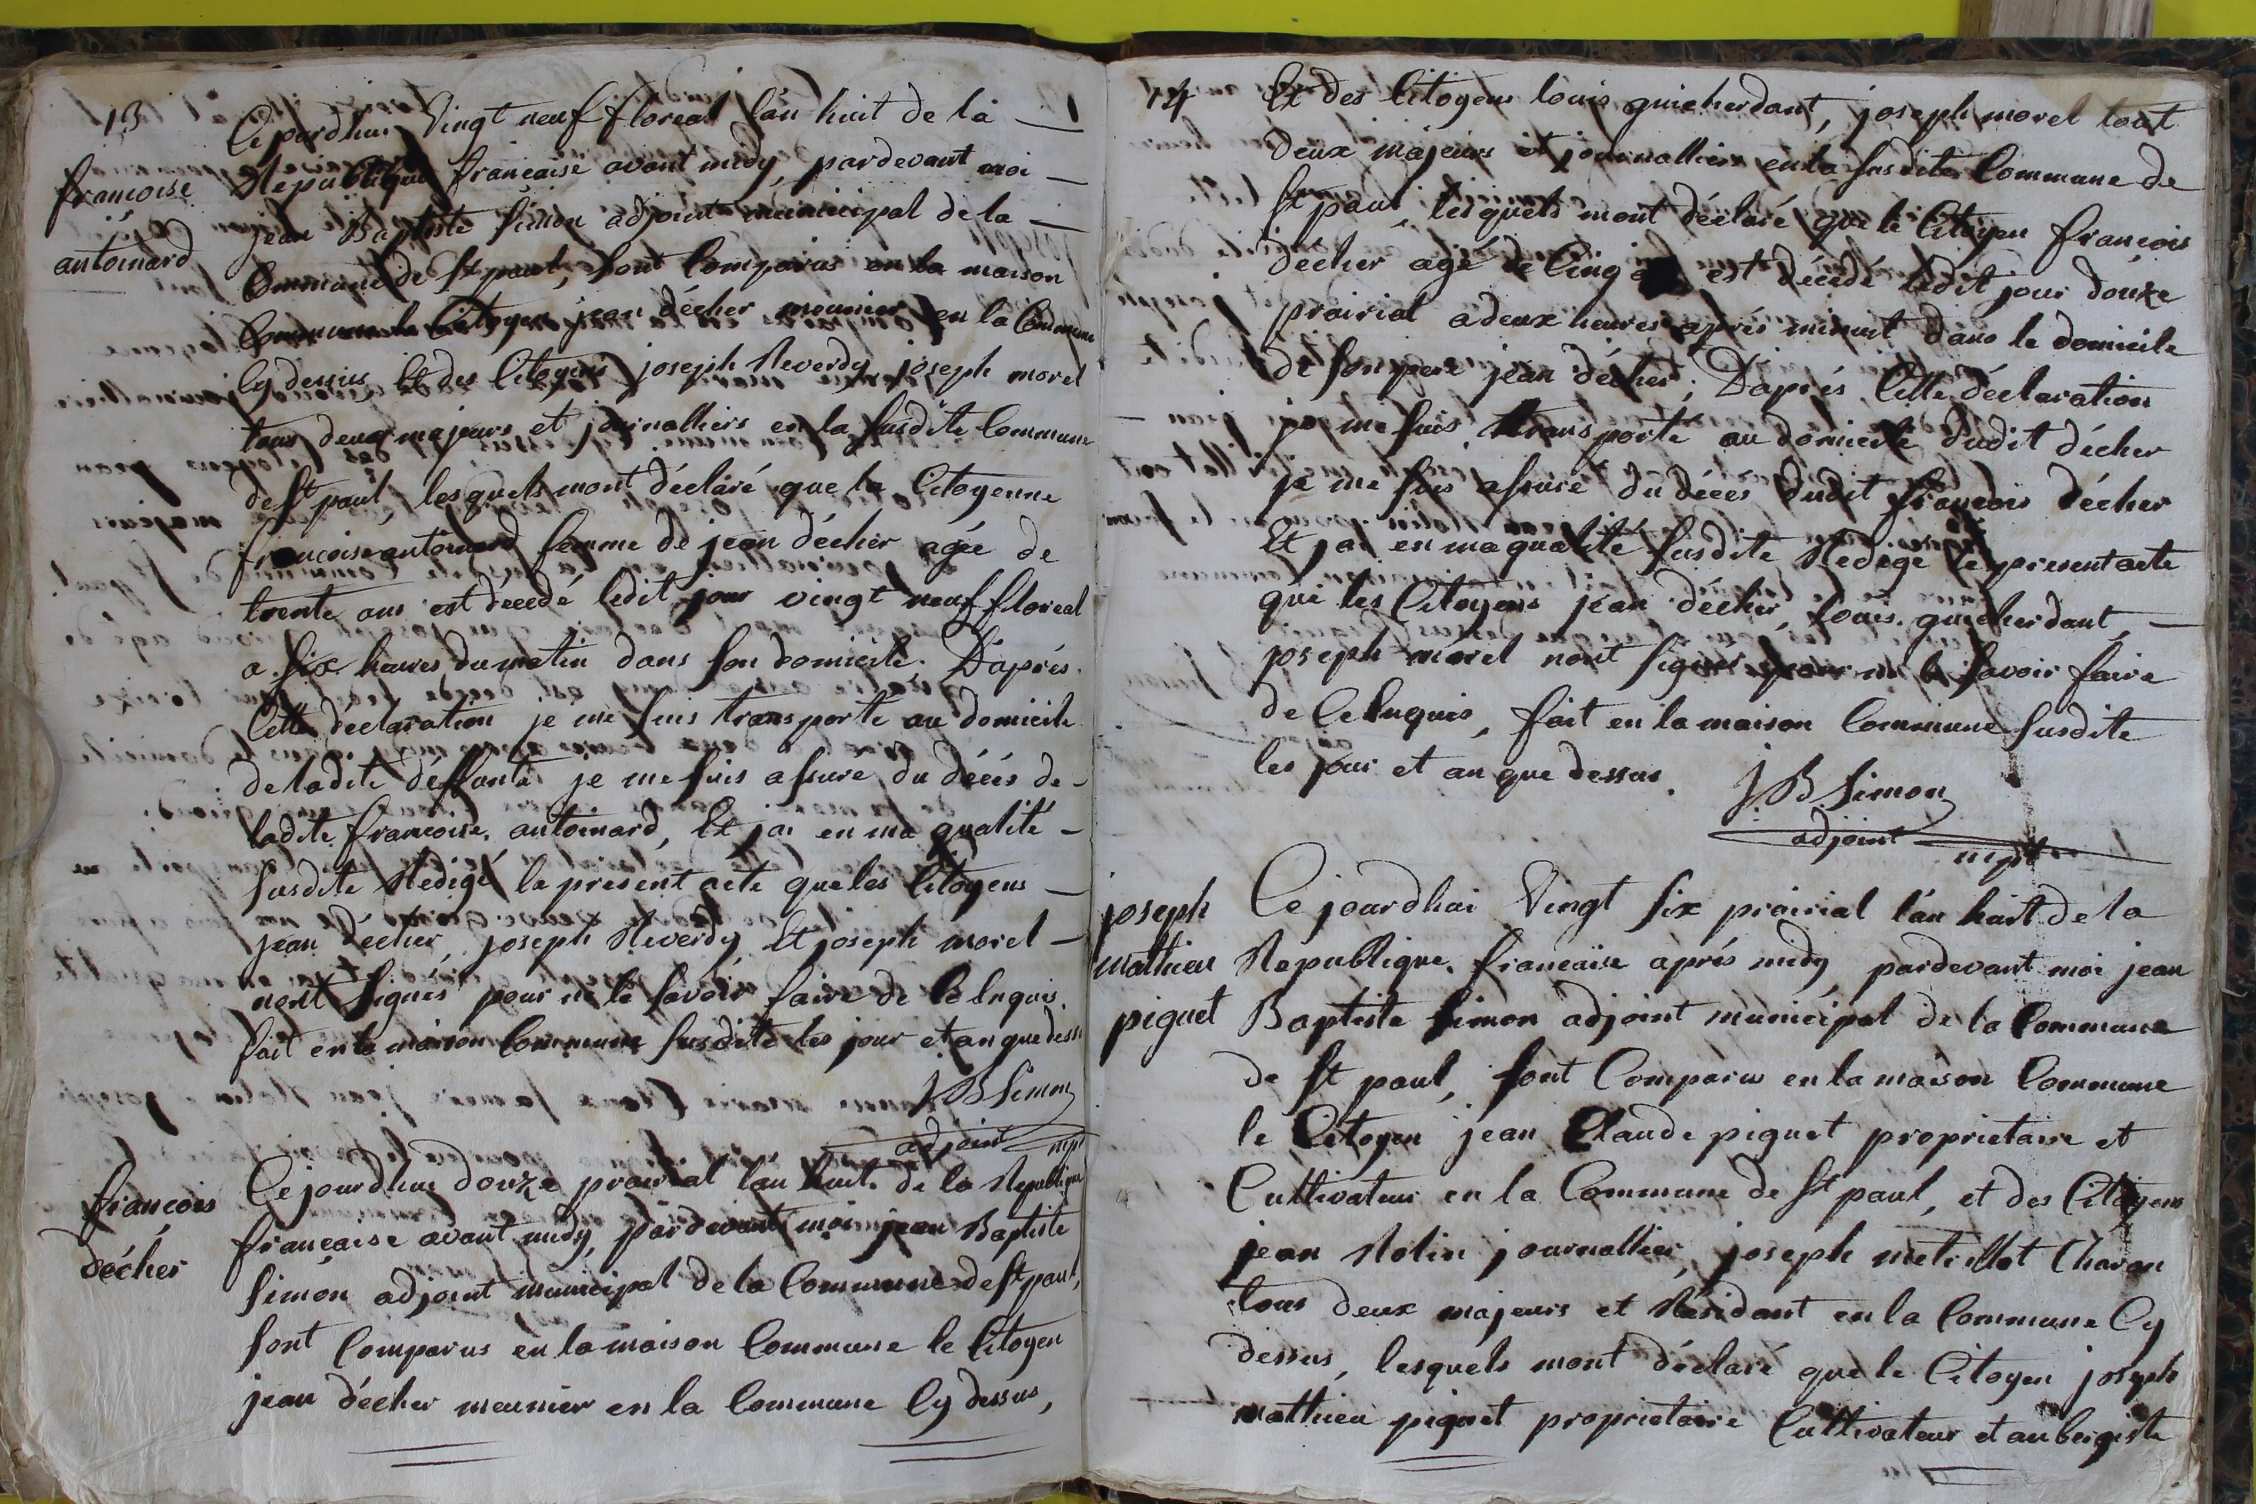 13
françoise
antoinard
Ce jourdhui Vingt neuf floreal l'an huit de la
Republique francaise avant midy, pardevant moi
jean Baptiste Simon adjoint municipal de la
Commune de St paul, sont Comparus en la maison
Commune le Citoyen jean décher meunier en la Commune
Cy dessus, Et des Citoyens joseph Reverdy, joseph morel
tous deux majeurs et journalliers en la susdite Commune
de St paul, lesquels mont déclaré que la Citoyenne
francoise antoinard femme de jean décher agée de
trente ans est decedé ledit jour vingt neuf floreal
a six heures du matin dans son domicile. D'aprés
Cette déclaration je me suis transporté au domicile
de ladite déffunte je me suis assuré du décés de
ladite francoise antoinard, Et j'ai en ma qualité
susdite Redigé le present acte que les Citoyens
jean décher, joseph Reverdy Et joseph morel
nont signés pour ne le savoir faire de Ce Enquis.
fait en la maison Commune susdite les jour et an que dessu
JB Simon
adjoint mpl
francois
décher
Ce jourdhui douze prairial l'an huit de la Republique
francaise avant midy, pardevant moi jean Baptiste
Simon adjoint municipal de la Commune de St paul,
sont Comparus en la maison Commune le Citoyen
jean décher meunier en la Commune Cy dessus,
14
Et des Citoyens louis guicherdant, joseph morel tout
deux majeurs et journalliers en la susdite Commune de
St paul, lesquels mont déclaré que le Citoyen francois
décher agé de Cinq est décedé ledit jour douze
prairial a deux heures aprés minuit dans le domicile
de son pere jean décher; D'aprés Cette déclaration
je me suis transporté au domicile dudit décher
je me suis assuré du décés dudit francois décher
Et j'ai en ma qualité susdite Redigé le present acte
que les Citoyens jean décher, louis guicherdant,
joseph morel nont signés pour ne le savoir faire
de Ce Enquis, fait en la maison Commune susdite
les jour et an que dessus.
JB Simon
adjoint mpl
joseph
mathieu
piquet
Ce jourdhui Vingt six prairial l'an huit de la
Republique francaise aprés midy, pardevant moi jean
Baptiste Simon adjoint municipal de la Commune
de St paul, sont Comparus en la maison Commune
le Citoyen jean Claude piquet proprietaire et
Cultivateur en la Commune de St paul, et des Citoyens
jean Rolin journallier, joseph metrillot Charon
tous deux majeurs et Residant en la Commune Cy
dessus, lesquels mont déclaré que le Citoyen joseph
mathieu piquet proprietaire Cultivateur et aubergiste